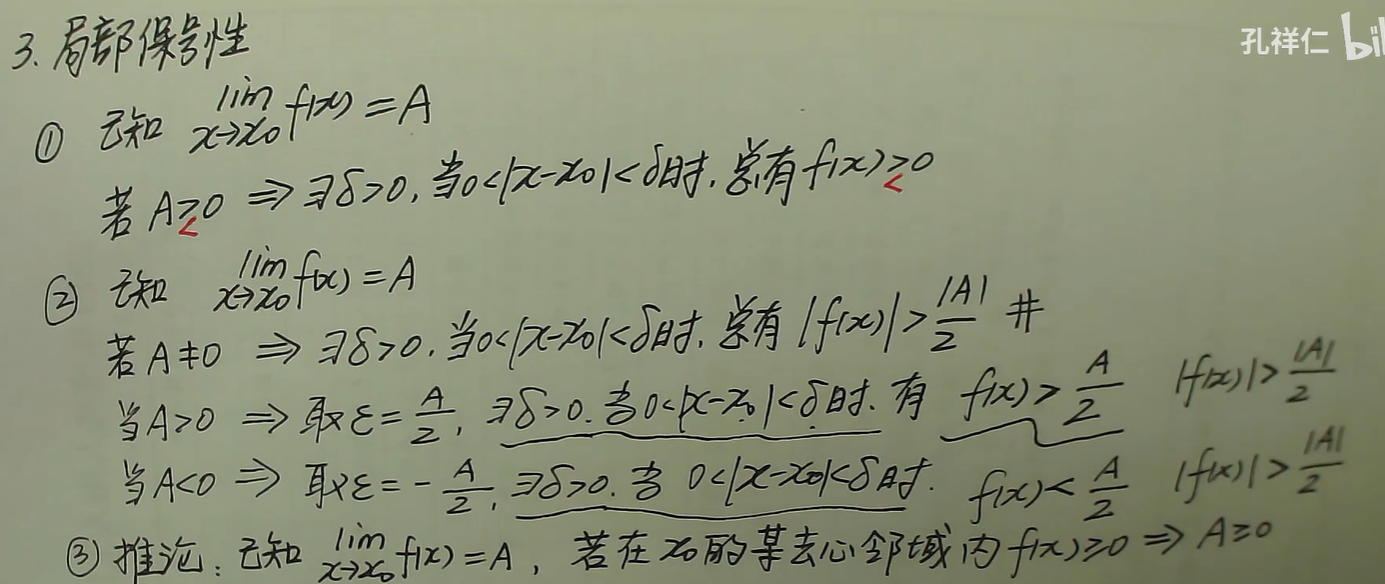 孔祥仁 bil
3. 局部保号性
① 已知 lim x→x₀ f(x) = A
若 A > 0 ⇒ ∃δ>0, 当0<|x-x₀|<δ时, 总有 f(x) > 0
< <
② 已知 lim x→x₀ f(x) = A
若 A ≠ 0 ⇒ ∃δ>0, 当0<|x-x₀|<δ时, 总有 |f(x)| > |A|/2 #
当A>0 ⇒ 取ε = A/2, ∃δ>0. 当0<|x-x₀|<δ时. 有 f(x) > A/2 |f(x)| > |A|/2
当A<0 ⇒ 取ε = -A/2, ∃δ>0. 当 0<|x-x₀|<δ时. f(x) < A/2 |f(x)| > |A|/2
③ 推论: 已知 lim x→x₀ f(x) = A, 若在 x₀的某去心邻域内 f(x) ≥ 0 ⇒ A ≥ 0